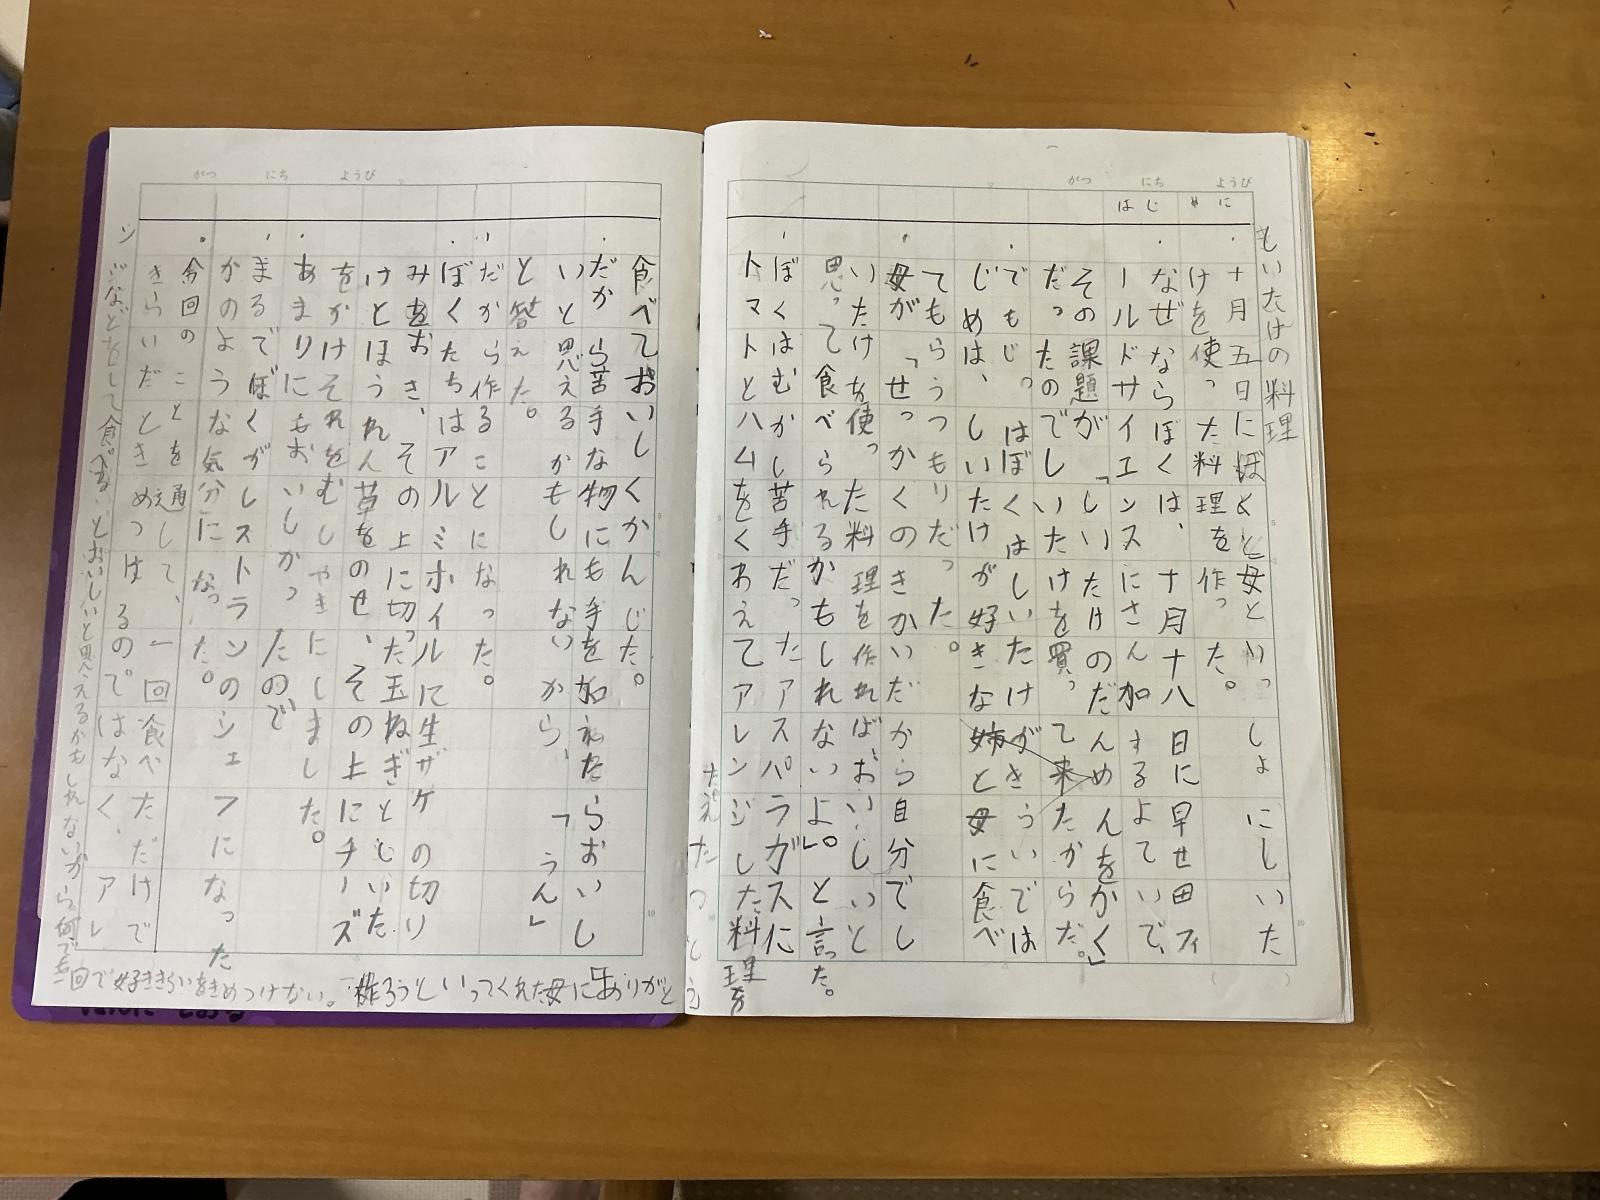 がつ にち ようび
はじめに
もいたけの料理
十月五日にぼくと母といっしょにしいた
けを使った料理を作った。
なぜならぼくは、十月十八日に早せ田フィ
ールドサイエンスにさん加するよていで、
その課題が「しいたけのだんめんをかく」
だったのでしいたけを買って来たからだ。
でもじつはぼくはしいたけがきらいでは
じめは、しいたけが好きな姉と母に食べ
てもらうつもりだった。
母が「せっかくのきかいだから自分でし
いたけを使った料理を作れば、おいしいと
思って食べられるかもしれないよ」。と言った。
ぼくはむかし苦手だったアスパラガスに
トマトとハムをくわえてアレンジした料理を
食べておいしくかんじた。
だから苦手な物にも手を加えたらおいし
いと思えるかもしれないから、「うん」
と答えた。
だから作ることになった。
ぼくたちはアルミホイルに生ザケの切り
みをおき、その上に切った玉ねぎとしいた
けとほうれん草をのせ、その上にチーズ
をかけそれをむしやきにしました。
あまりにもおいしかったので
まるでぼくがレストランのシェフになった
かのような気分になった。
がつ にち ようび
今回のことを通して、一回食べただけで
きらいだときめつけるのではなく、アレ
ンジなどをして食べる、とおいしいと思えるかもしれないから何でも
一回で好ききらいをきめつけない。作ろうといってくれた母に「ありがと